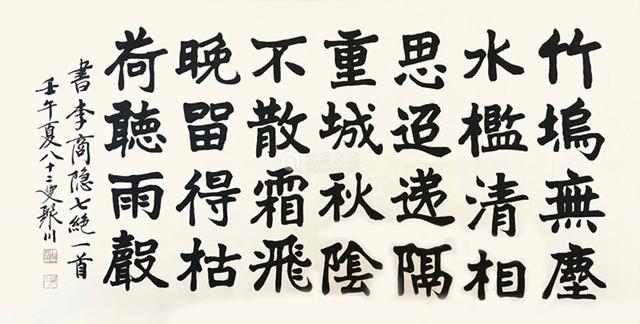 竹塢無塵
水檻清相
思迢递隔
重城秋陰
不散霜飛
晚留得枯
荷聽雨聲
書李商隐七絕一首
壬午夏八十二叟川